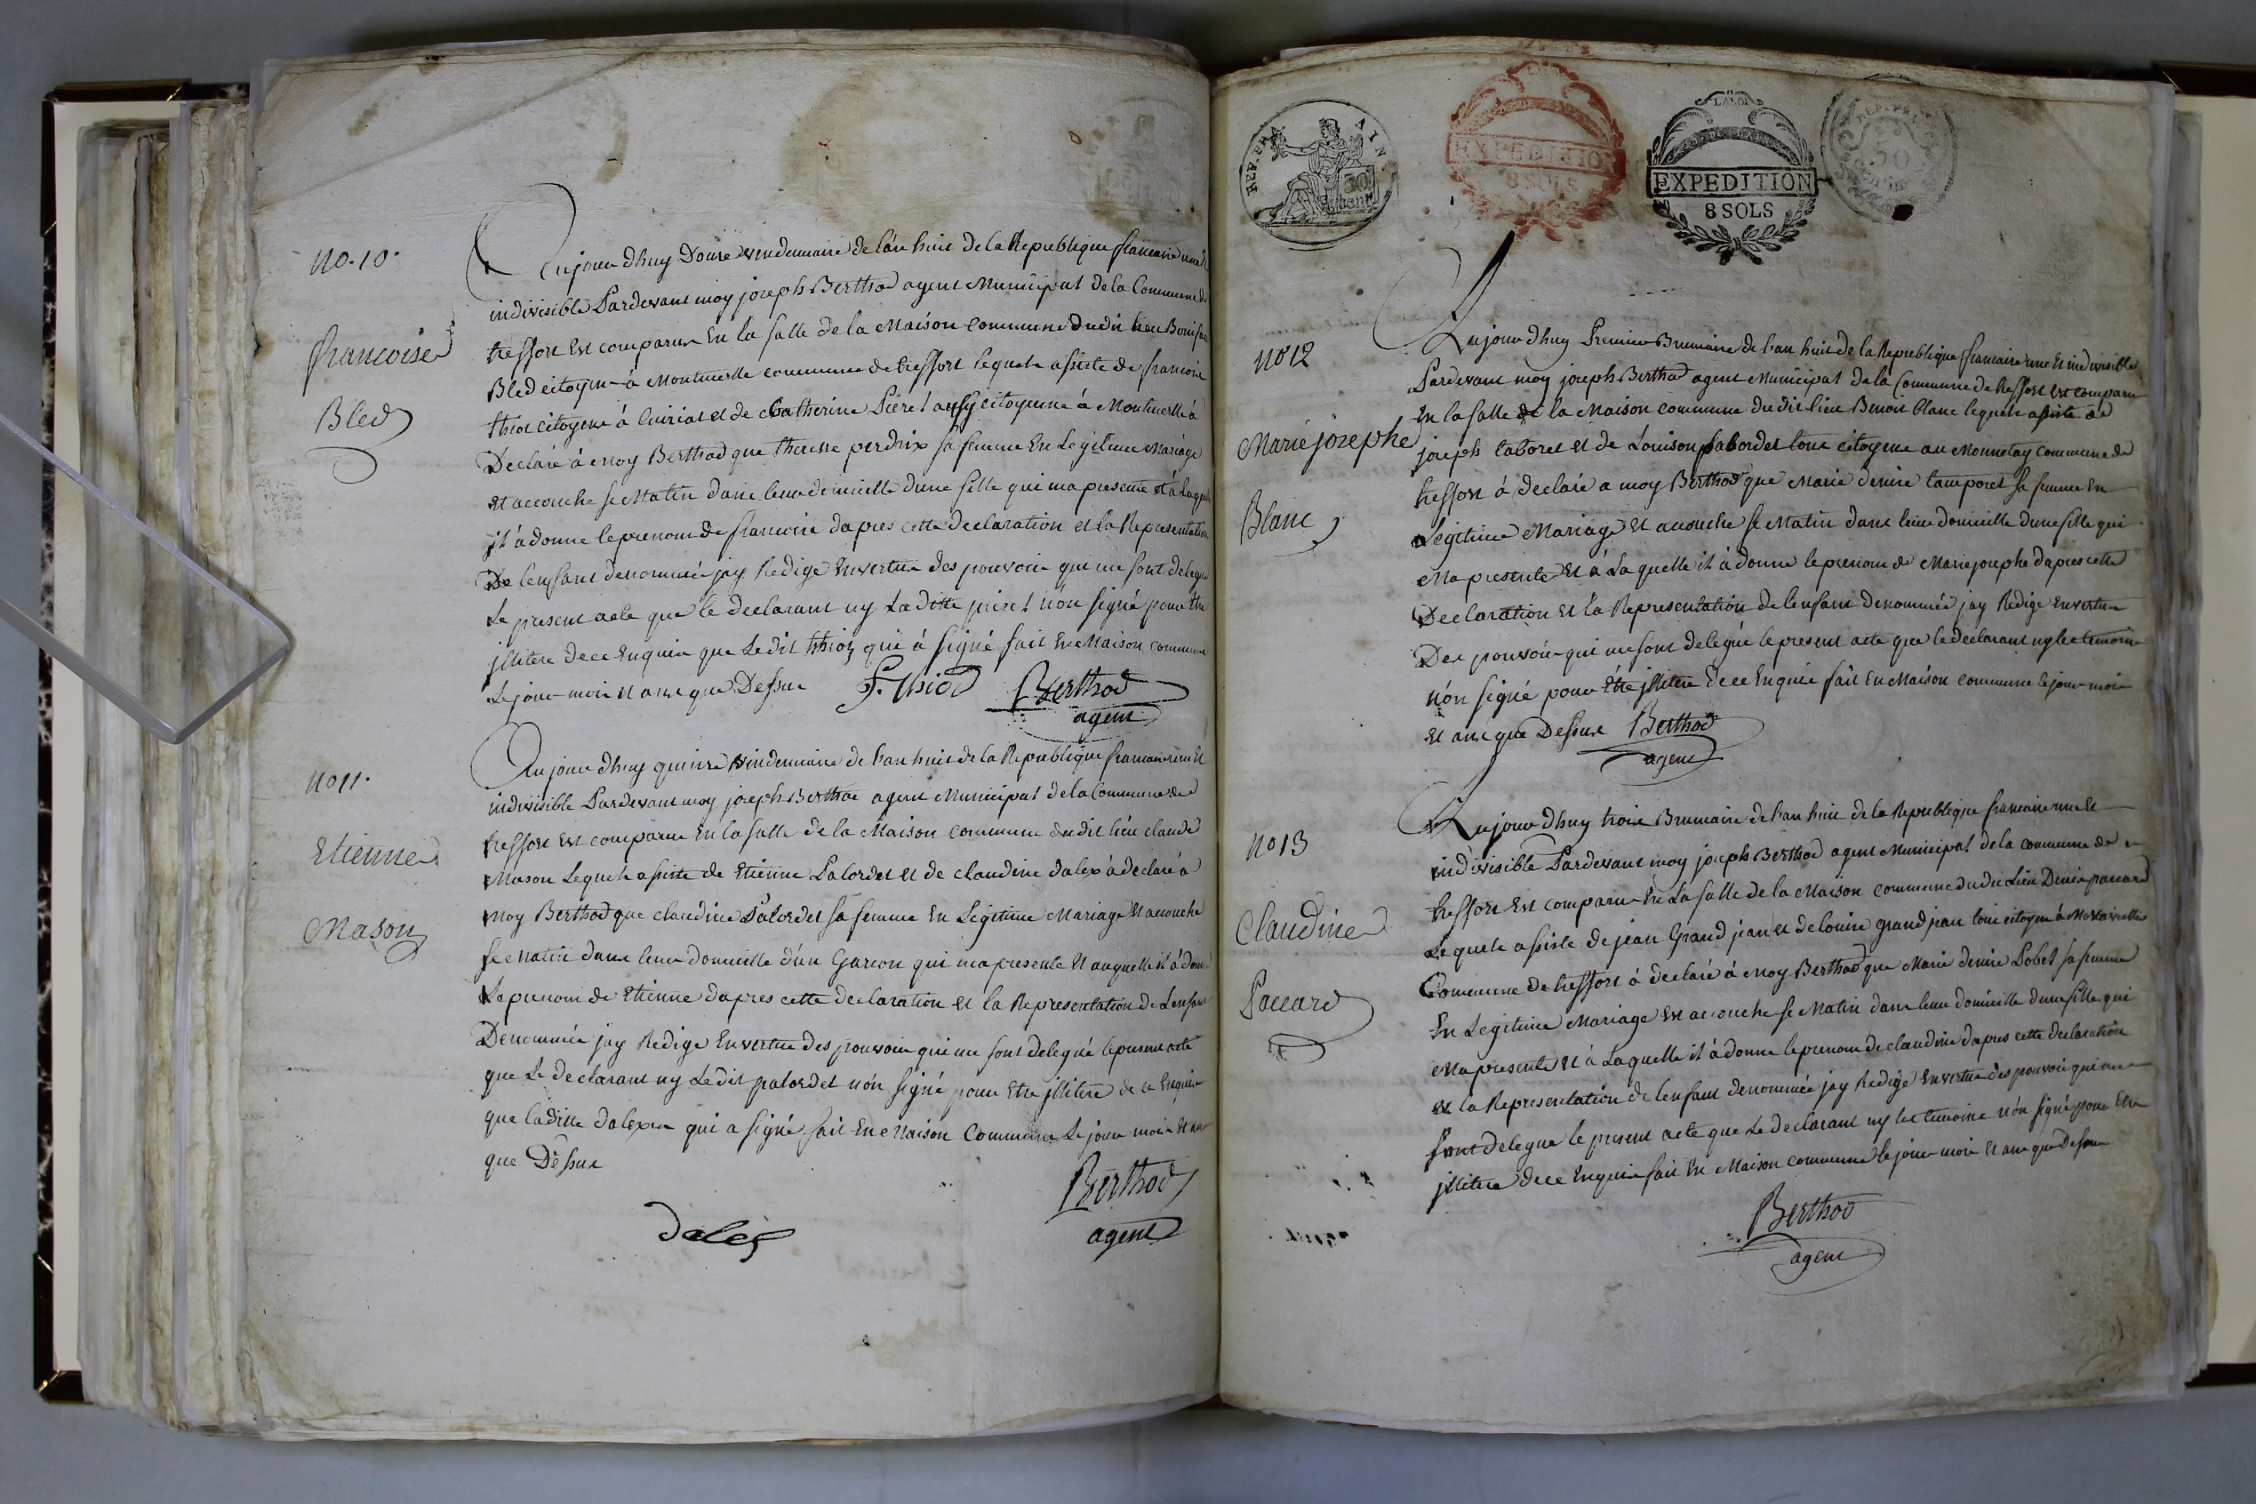 no. 10.
francoise
Bled
Aujourdhuy Douze vindemiaire de l'an huit de la Republique francaise une Et
indivisible Pardevant moy joseph Berthod agent Municipal de la Commune de
treffort Est comparu En la salle de la Maison commune dudit lieu
Bled citoyen à Montmerle commune de treffort lequel assisté de francois
thiot citoyen à Cuiriat et de Catherine Piret aussy citoyenne à Montmerle à
Declaré à moy Berthod que theresse perdrix sa femme En Legitime Mariage
Et accouche se Matin dans leur domicille dune fille qui ma presente Et à Laquelle
il à donne le prenom de francoise dapres cette declaration et la Representation
De lenfant denommée jay Redigé Envertu des pouvoir qui me sont delegue
Le present acte que le declarant ny La ditte piret n'on signé pour Etre
jllitere de ce Enquis que Ledit thiot qui à signé fait En Maison commune
Le jour mois Et ans que Dessus F. thiot Berthod
agent
no 11.
Etienne
Mason
Aujourdhuy quinze vindemiaire de l'an huit de la Republique francaise une Et
indivisible Pardevant moy joseph Berthod agent Municipal de la Commune de
treffort Est comparu En la salle de la Maison commune dudit lieu claude
Mason Lequel assisté de Etienne Palordet et de claudine dalex à declaré à
moy Berthod que claudine Palordet sa femme En Legitime Mariage Et accouche
se Matin dans leur domicille d'un Garcon qui ma presente Et auquelle il à donné
Le prenom de Etienne dapres cette declaration et la Representation de Lenfant
Denommée jay Redigé Envertu des pouvoir qui me sont delegué le present acte
que Le declarant ny Ledit palordet n'on signé pour Etre jllitere de ce Enquis
que laditte dalex qui a signé fait En Maison Commune Le jour mois Et ans
que Dessus
Berthod
agent
dalex
REP. FRA AIN
50 cent
EXPEDITION
8 SOLS
LA LOI
EXPEDITION
8 SOLS
REP. FRA
50
no 12
Marie josephe
Blanc
Aujourdhuy Premier Brumaire de l'an huit de la Republique francaise une Et indivisible
Pardevant moy joseph Berthod agent Municipal de la Commune de treffort Est comparu
En la salle de la Maison commune dudit lieu Benoit blanc lequel assisté de
joseph laboret et de Louison palordet tous citoyens au Monnetay commune de
treffort à declaré a moy Berthod que Marie denise tamporet sa femme En
Legitime Mariage Et accouche se Matin dans leur domicille dune fille qui
Ma presente Et à La quelle il à donne le prenom de Marie josephe dapres cette
Declaration Et la Representation de lenfant denommée jay Redigé Envertu
Des pouvoir qui me sont delegué le present acte que le declarant ny les temoins
n'on signé pour Etre jllitere de ce Enquis fait En Maison commune le jour mois
Et ans que Dessus Berthod
agent
no 13
Claudine
Paccard
Aujourdhuy trois Brumaire de l'an huit de la Republique francaise une Et
indivisible Pardevant moy joseph Berthod agent Municipal de la commune de
treffort Est comparu En La salle de la Maison commune dudit Lieu Denis paccard
Lequel assisté de jean Grand jean et de louise grand jean tous citoyen à
Commune de treffort à declaré à moy Berthod que Marie denise Pobel sa femme
En Legitime Mariage Est accouche se Matin dans leur domicille dune fille qui
Ma presente Et à Laquelle il à donne le prenom de claudine dapres cette declaration
Et la Representation de lenfant denommée jay Redigé Envertu des pouvoir qui me
sont delegue le present acte que Le declarant ny les temoins n'on signé pour Etre
jllitere de ce Enquis fait En Maison commune le jour mois Et ans que Dessus
Berthod
agent